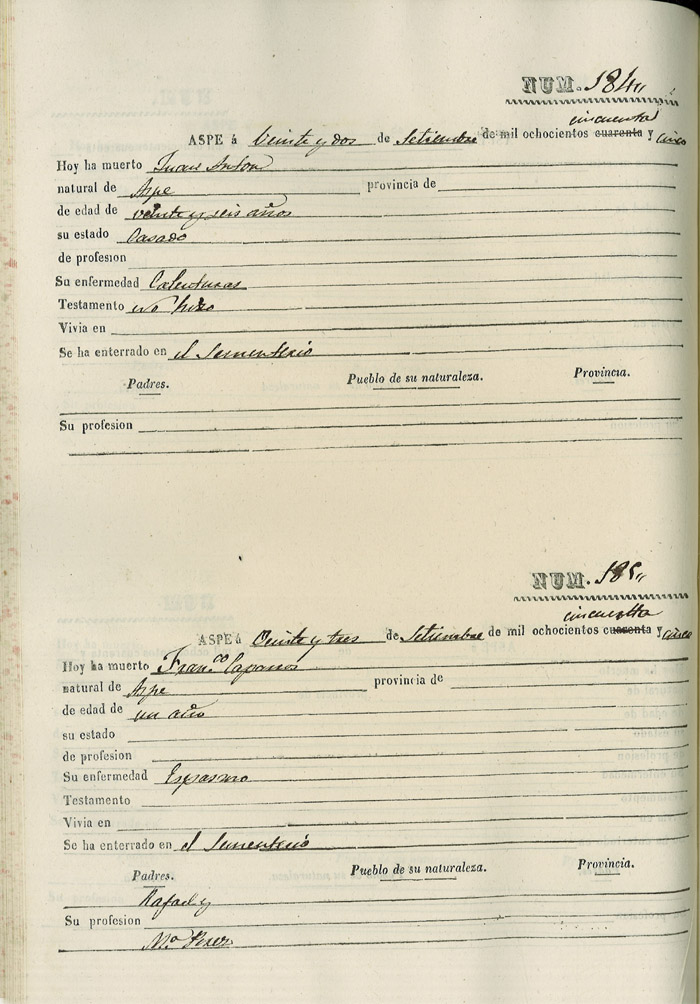 NUM. 184
cincuenta
ASPE á Veinte y dos de Setiembre de mil ochocientos cuarenta y cinco
Hoy ha muerto Juan Anton
natural de Aspe provincia de
de edad de veinte y seis años
su estado Casado
de profesion
Su enfermedad Calenturas
Testamento no hizo
Vivia en
Se ha enterrado en el Sementerio
Padres. Pueblo de su naturaleza. Provincia.
Su profesion
NUM. 185
cincuenta
ASPE á Veinte y tres de Setiembre de mil ochocientos cuarenta y cinco
Hoy ha muerto Fran.co Caparros
natural de Aspe provincia de
de edad de un año
su estado
de profesion
Su enfermedad Espasmo
Testamento
Vivia en
Se ha enterrado en el Sementerio
Padres. Pueblo de su naturaleza. Provincia.
Rafael y
Su profesion
M.a